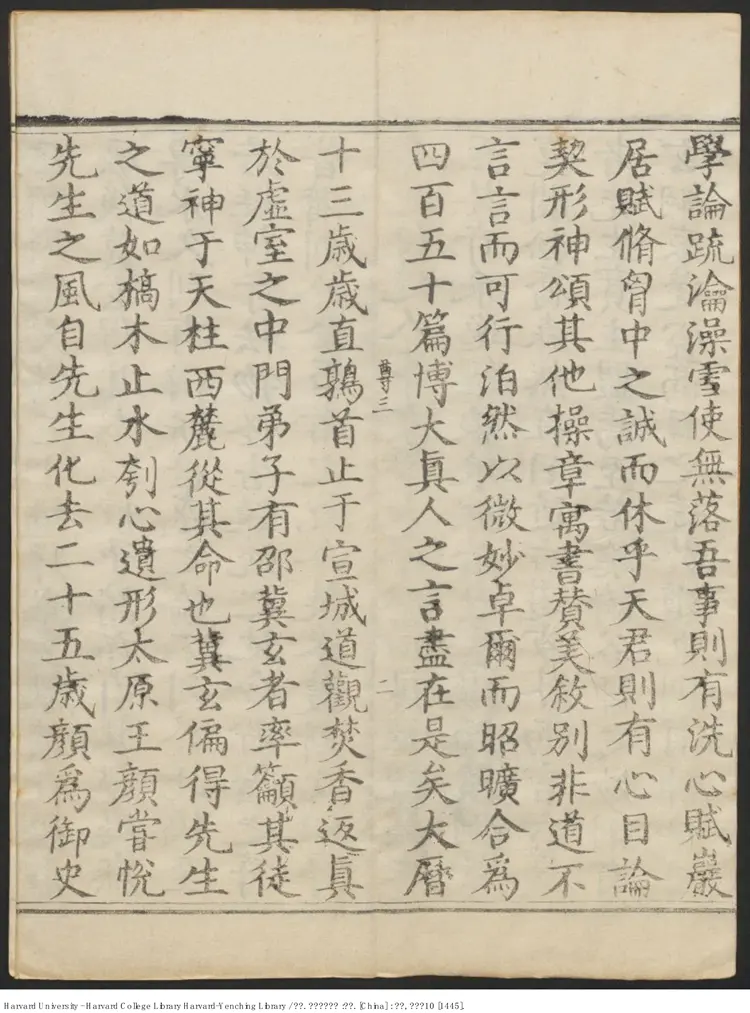 學論疏瀹澡雪使無落吾事則有洗心賦巖
居賦脩胷中之誠而休乎天君則有心目論
契形神頌其他操章寓書賛美敘別非道不
言言而可行泊然以微妙卓爾而昭曠合爲
四百五十篇博大眞人之言盡在是矣大曆
尊三
二
十三歳歳直鶉首止于宣城道觀焚香返眞
於虛室之中門弟子有邵冀玄者率籲其徒
寧神于天柱西麓從其命也冀玄偏得先生
之道如槁木止水刳心遺形太原王顏嘗悅
先生之風自先生化去二十五歳顏爲御史
Harvard University - Harvard College Library Harvard-Yenching Library / ??. ?????? :??. [China] : ??, ???10 [1445].